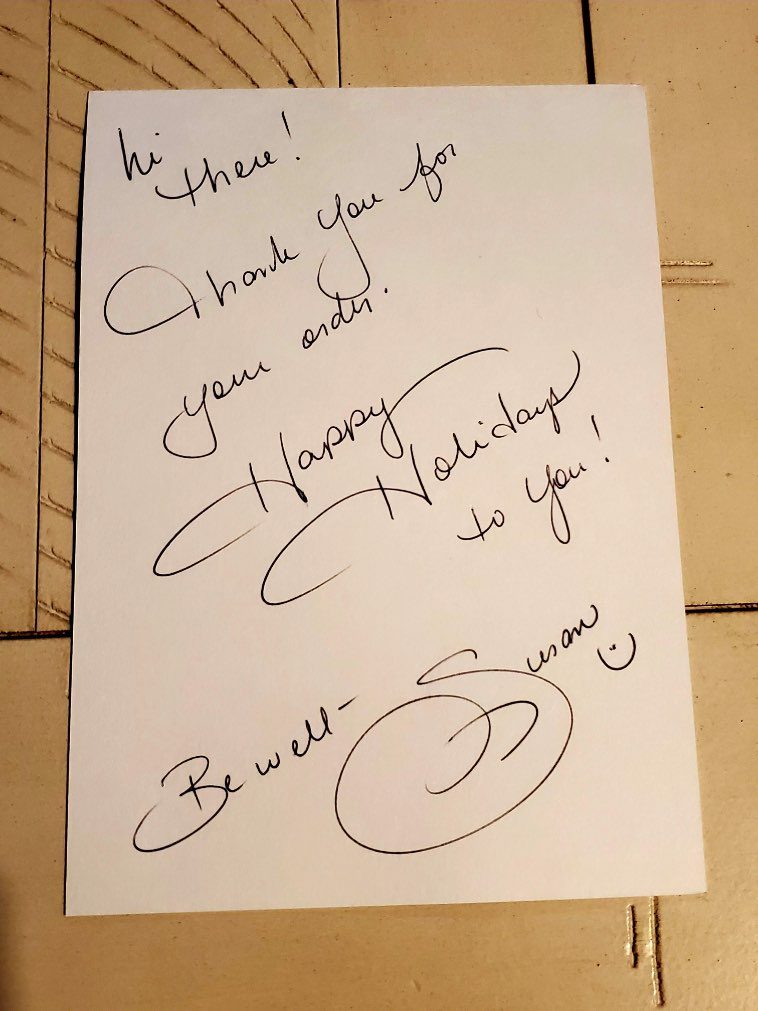 hi
there!
Thank you for
your order.
Happy
Holidays
to you!
Be well- Susan